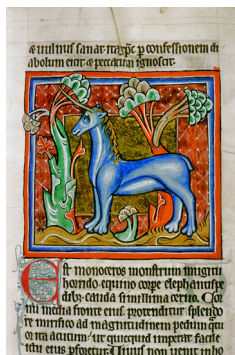 & uulnus sanat ita & xpc p confessionem di
abolum eicit & peccatum ignoscit.
Est monoceros monstrum mugitu
horrido. equino corpe. elephantis pe
dib; cauda simillima ceruo. Cor
nu media fronte eius protenditur splendo
re mirifico ad magnitudinem pedum
ita acutum. ut quicquid impetat facile
ictu eius